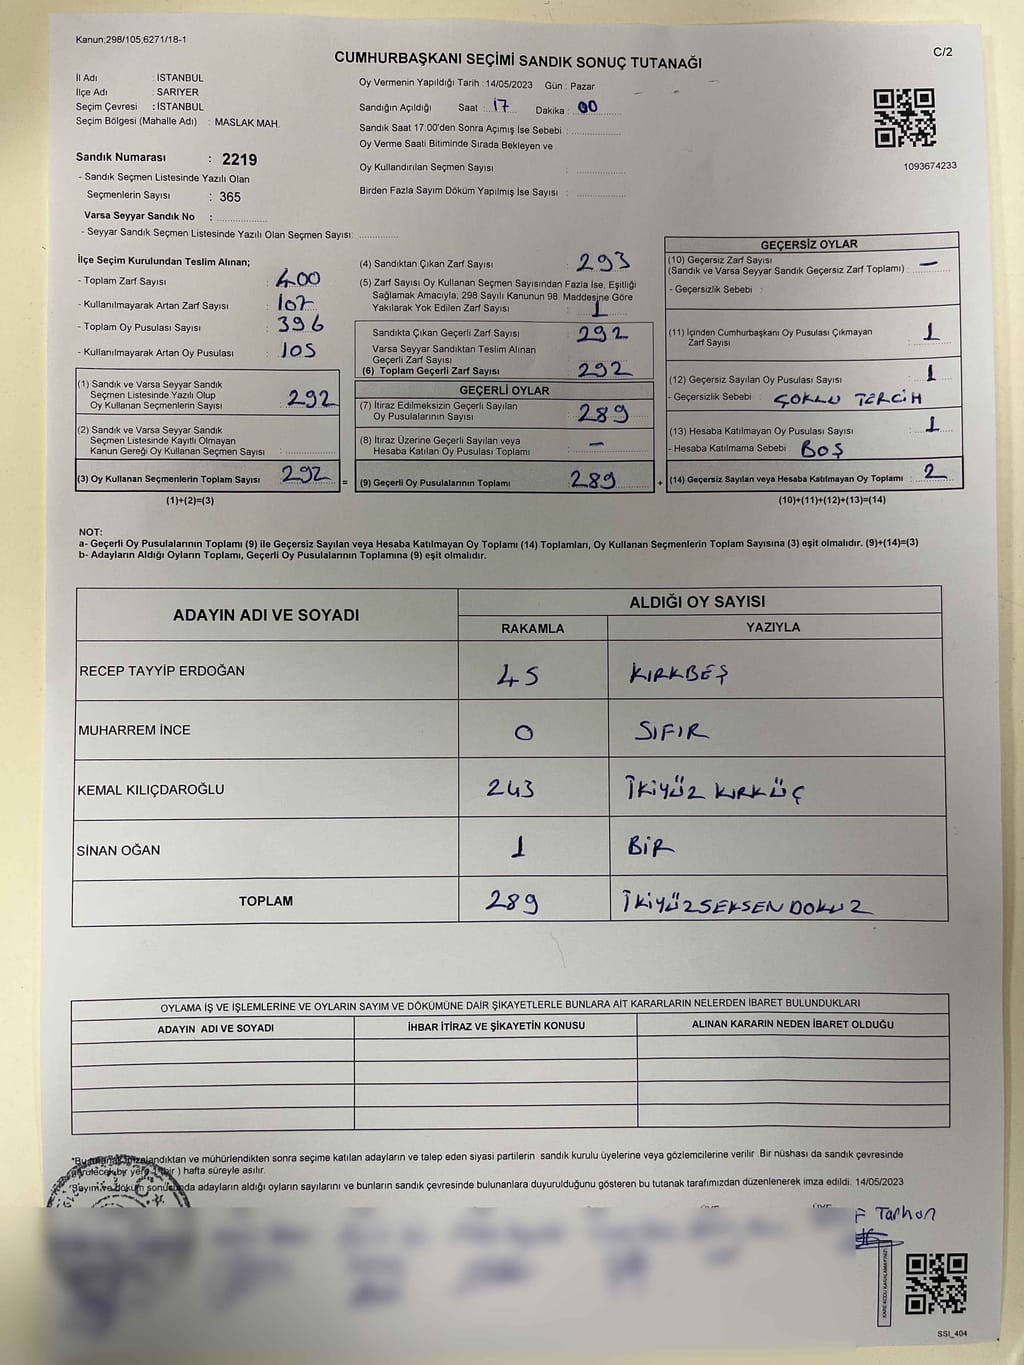 Kanun;298/105,6271/18-1
C/2
CUMHURBAŞKANI SEÇİMİ SANDIK SONUÇ TUTANAĞI
İl Adı : İSTANBUL
İlçe Adı : SARIYER
Seçim Çevresi : İSTANBUL
Seçim Bölgesi (Mahalle Adı) : MASLAK MAH.
Sandık Numarası : 2219
- Sandık Seçmen Listesinde Yazılı Olan
Seçmenlerin Sayısı : 365
Varsa Seyyar Sandık No :
- Seyyar Sandık Seçmen Listesinde Yazılı Olan Seçmen Sayısı:
Oy Vermenin Yapıldığı Tarih : 14/05/2023 Gün : Pazar
Sandığın Açıldığı Saat : 17 Dakika : 00
Sandık Saat 17:00'den Sonra Açımış İse Sebebi :
Oy Verme Saati Bitiminde Sırada Bekleyen ve
Oy Kullandırılan Seçmen Sayısı :
Birden Fazla Sayım Döküm Yapılmış İse Sayısı :
1093674233
İlçe Seçim Kurulundan Teslim Alınan;
- Toplam Zarf Sayısı : 400
- Kullanılmayarak Artan Zarf Sayısı : 107
- Toplam Oy Pusulası Sayısı : 396
- Kullanılmayarak Artan Oy Pusulası : 105
(1) Sandık ve Varsa Seyyar Sandık
Seçmen Listesinde Yazılı Olup
Oy Kullanan Seçmenlerin Sayısı : 292
(2) Sandık ve Varsa Seyyar Sandık
Seçmen Listesinde Kayıtlı Olmayan
Kanun Gereği Oy Kullanan Seçmen Sayısı :
(3) Oy Kullanan Seçmenlerin Toplam Sayısı : 292 =
(1)+(2)=(3)
(4) Sandıktan Çıkan Zarf Sayısı : 293
(5) Zarf Sayısı Oy Kullanan Seçmen Sayısından Fazla İse, Eşitliği
Sağlamak Amacıyla; 298 Sayılı Kanunun 98. Maddesine Göre
Yakılarak Yok Edilen Zarf Sayısı : 1
Sandıkta Çıkan Geçerli Zarf Sayısı : 292
Varsa Seyyar Sandıktan Teslim Alınan
Geçerli Zarf Sayısı :
(6) Toplam Geçerli Zarf Sayısı : 292
GEÇERLİ OYLAR
(7) İtiraz Edilmeksizin Geçerli Sayılan
Oy Pusulalarının Sayısı : 289
(8) İtiraz Üzerine Geçerli Sayılan veya
Hesaba Katılan Oy Pusulası Toplamı : –
(9) Geçerli Oy Pusulalarının Toplamı : 289 +
GEÇERSİZ OYLAR
(10) Geçersiz Zarf Sayısı
(Sandık ve Varsa Seyyar Sandık Geçersiz Zarf Toplamı) : –
- Geçersizlik Sebebi :
(11) İçinden Cumhurbaşkanı Oy Pusulası Çıkmayan
Zarf Sayısı : 1
(12) Geçersiz Sayılan Oy Pusulası Sayısı : 1
- Geçersizlik Sebebi : ÇOKLU TERCİH
(13) Hesaba Katılmayan Oy Pusulası Sayısı : 1
- Hesaba Katılmama Sebebi : BOŞ
(14) Geçersiz Sayılan veya Hesaba Katılmayan Oy Toplamı : 2
(10)+(11)+(12)+(13)=(14)
NOT:
a- Geçerli Oy Pusulalarının Toplamı (9) ile Geçersiz Sayılan veya Hesaba Katılmayan Oy Toplamı (14) Toplamları, Oy Kullanan Seçmenlerin Toplam Sayısına (3) eşit olmalıdır. (9)+(14)=(3)
b- Adayların Aldığı Oyların Toplamı, Geçerli Oy Pusulalarının Toplamına (9) eşit olmalıdır.
ADAYIN ADI VE SOYADI ALDIĞI OY SAYISI
RAKAMLA YAZIYLA
RECEP TAYYİP ERDOĞAN 45 KIRKBEŞ
MUHARREM İNCE 0 SIFIR
KEMAL KILIÇDAROĞLU 243 İKİYÜZ KIRKÜÇ
SİNAN OĞAN 1 BİR
TOPLAM 289 İKİYÜZSEKSEN DOKUZ
OYLAMA İŞ VE İŞLEMLERİNE VE OYLARIN SAYIM VE DÖKÜMÜNE DAİR ŞİKAYETLERLE BUNLARA AİT KARARLARIN NELERDEN İBARET BULUNDUKLARI
ADAYIN ADI VE SOYADI İHBAR İTİRAZ VE ŞİKAYETİN KONUSU ALINAN KARARIN NEDEN İBARET OLDUĞU
*Bu tutanak imzalandıktan ve mühürlendikten sonra seçime katılan adayların ve talep eden siyasi partilerin sandık kurulu üyelerine veya gözlemcilerine verilir .Bir nüshası da sandık çevresinde
görülecek bir yere 1 (bir ) hafta süreyle asılır.
*Sayım ve döküm sonucunda adayların aldığı oyların sayılarını ve bunların sandık çevresinde bulunanlara duyurulduğunu gösteren bu tutanak tarafımızdan düzenlenerek imza edildi. 14/05/2023
F Tarhan
SSİ_404